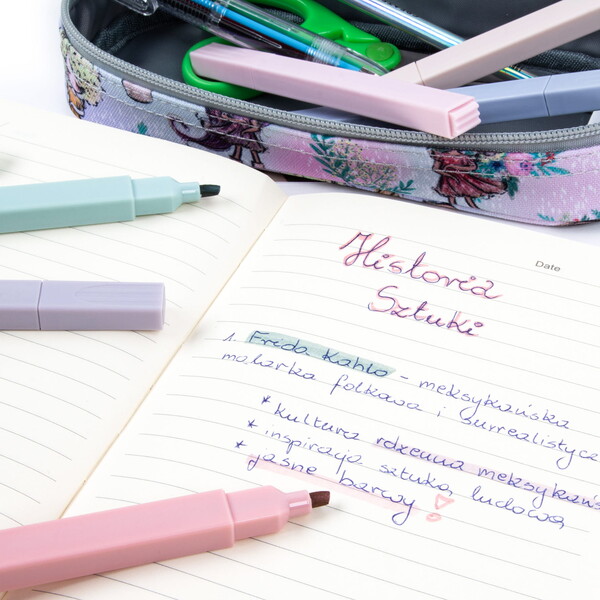 Date
Historia
Sztuki
1. Frida Kahlo - meksykańska
malarka folkowa i surrealistycz
* kultura rdzenna meksykańs
* inspiracja sztuką ludową
* jasne barwy !